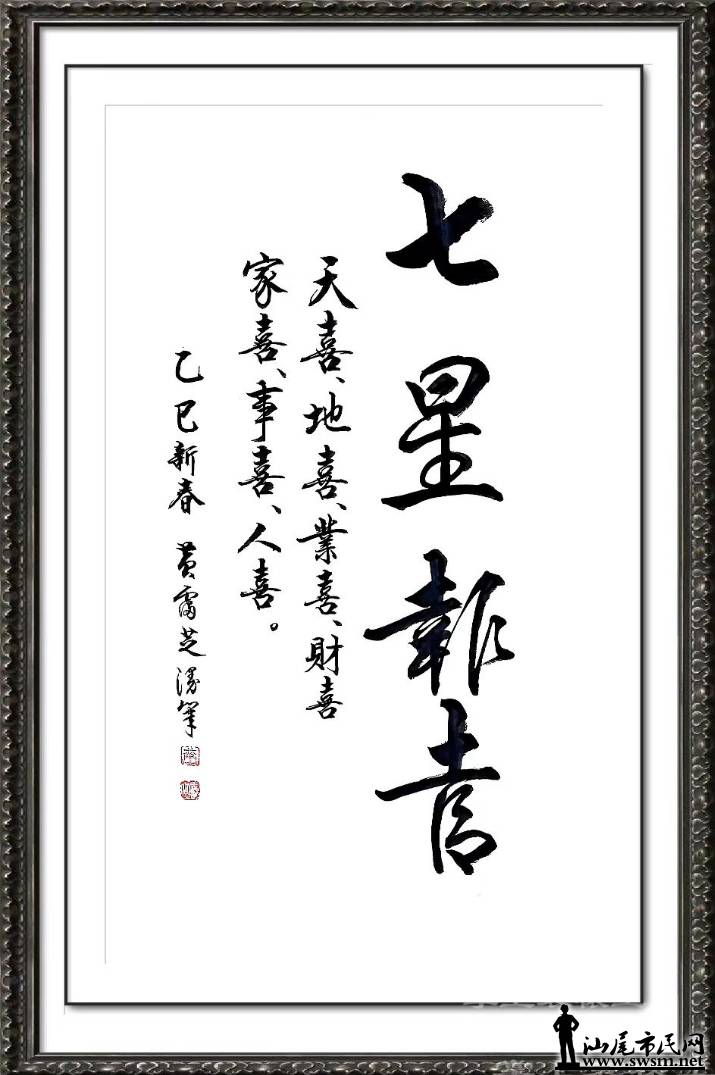 七星報喜
天喜、地喜、業喜、財喜
家喜、事喜、人喜。
乙巳新春 黄 芝 筆
汕尾市民网
www.swsm.net